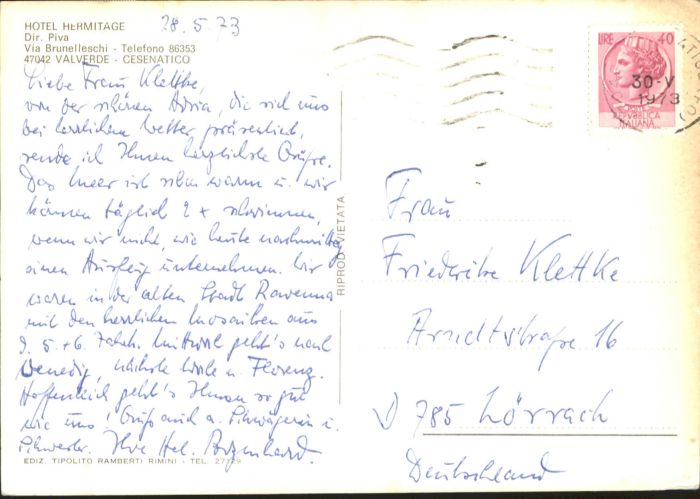 HOTEL HERMITAGE
Dir. Piva
Via Brunelleschi - Telefono 86353
47042 VALVERDE - CESENATICO
28.5.73
Liebe Frau Klettke,
von der schönen Adria, die sich uns
bei herrlichem Wetter präsentiert,
sende ich Ihnen herzlichste Grüße.
Das Meer ist schon warm u. wir
können täglich 2 x schwimmen,
wenn wir nicht, wie heute nachmittag
einen Ausflug unternehmen. Wir
waren in der alten Stadt Ravenna
mit den herrlichen Mosaiken aus
d. 5. + 6. Jahrh. Mittwoch geht's nach
Venedig, nächste Woche n. Florenz.
Hoffentlich geht's Ihnen so gut
wie uns! Gruß auch a. Schwägerin u.
Schwester. Ihre Hel.
EDIZ. TIPOLITO RAMBERTI RIMINI - TEL. 27129
RIPROD. VIETATA
LIRE 40
30-V
1973
REPUBBLICA
ITALIANA
Frau
Friederike Klettke
Arndtstraße 16
D 785 Lörrach
Deutschland